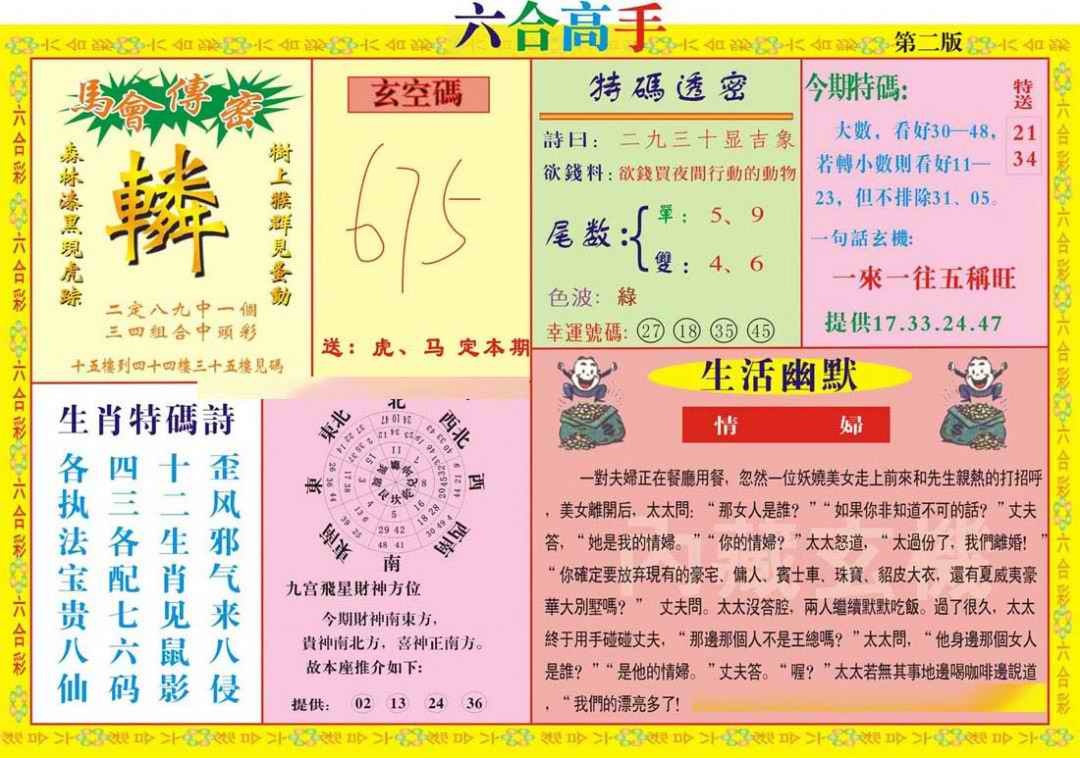 六合高手
第二版
馬會傳密
樹上猴群見蚤動
轔
森林漆黑現虎踪
二定八九中一個
三四組合中頭彩
十五樓到四十四樓三十五樓見碼
玄空碼
675
送：虎、马 定本期
特碼透密
詩曰：二九三十显吉象
欲錢料：欲錢買夜間行動的動物
尾数：
單：5、9
雙：4、6
色波：綠
幸運號碼：27 18 35 45
今期特碼:
特送
21
34
大數，看好30—48，
若轉小數則看好11—
23，但不排除31、05。
一句話玄機:
一來一往五稱旺
提供17.33.24.47
生肖特碼詩
歪风邪气来八侵
十二生肖见鼠影
四三各配七六码
各执法宝贵八仙
北
東北
西北
東
西
東南
西南
南
九宫飛星財神方位
今期財神南東方，
貴神南北方，喜神正南方。
故本座推介如下:
提供: 02 13 24 36
生活幽默
情婦
一對夫婦正在餐廳用餐，忽然一位妖嬈美女走上前來和先生親熱的打招呼
，美女離開后，太太問：“那女人是誰？”“如果你非知道不可的話？”丈夫
答，“她是我的情婦。”“你的情婦？”太太怒道，“太過份了，我們離婚！”
“你確定要放弃現有的豪宅、傭人、賓士車、珠寶、貂皮大衣，還有夏威夷豪
華大別墅嗎？” 丈夫問。太太沒答腔，兩人繼續默默吃飯。過了很久，太太
終于用手碰碰丈夫，“那邊那個人不是王總嗎？”太太問，“他身邊那個女人
是誰？”“是他的情婦。”丈夫答。“喔？”太太若無其事地邊喝咖啡邊說道
，“我們的漂亮多了！